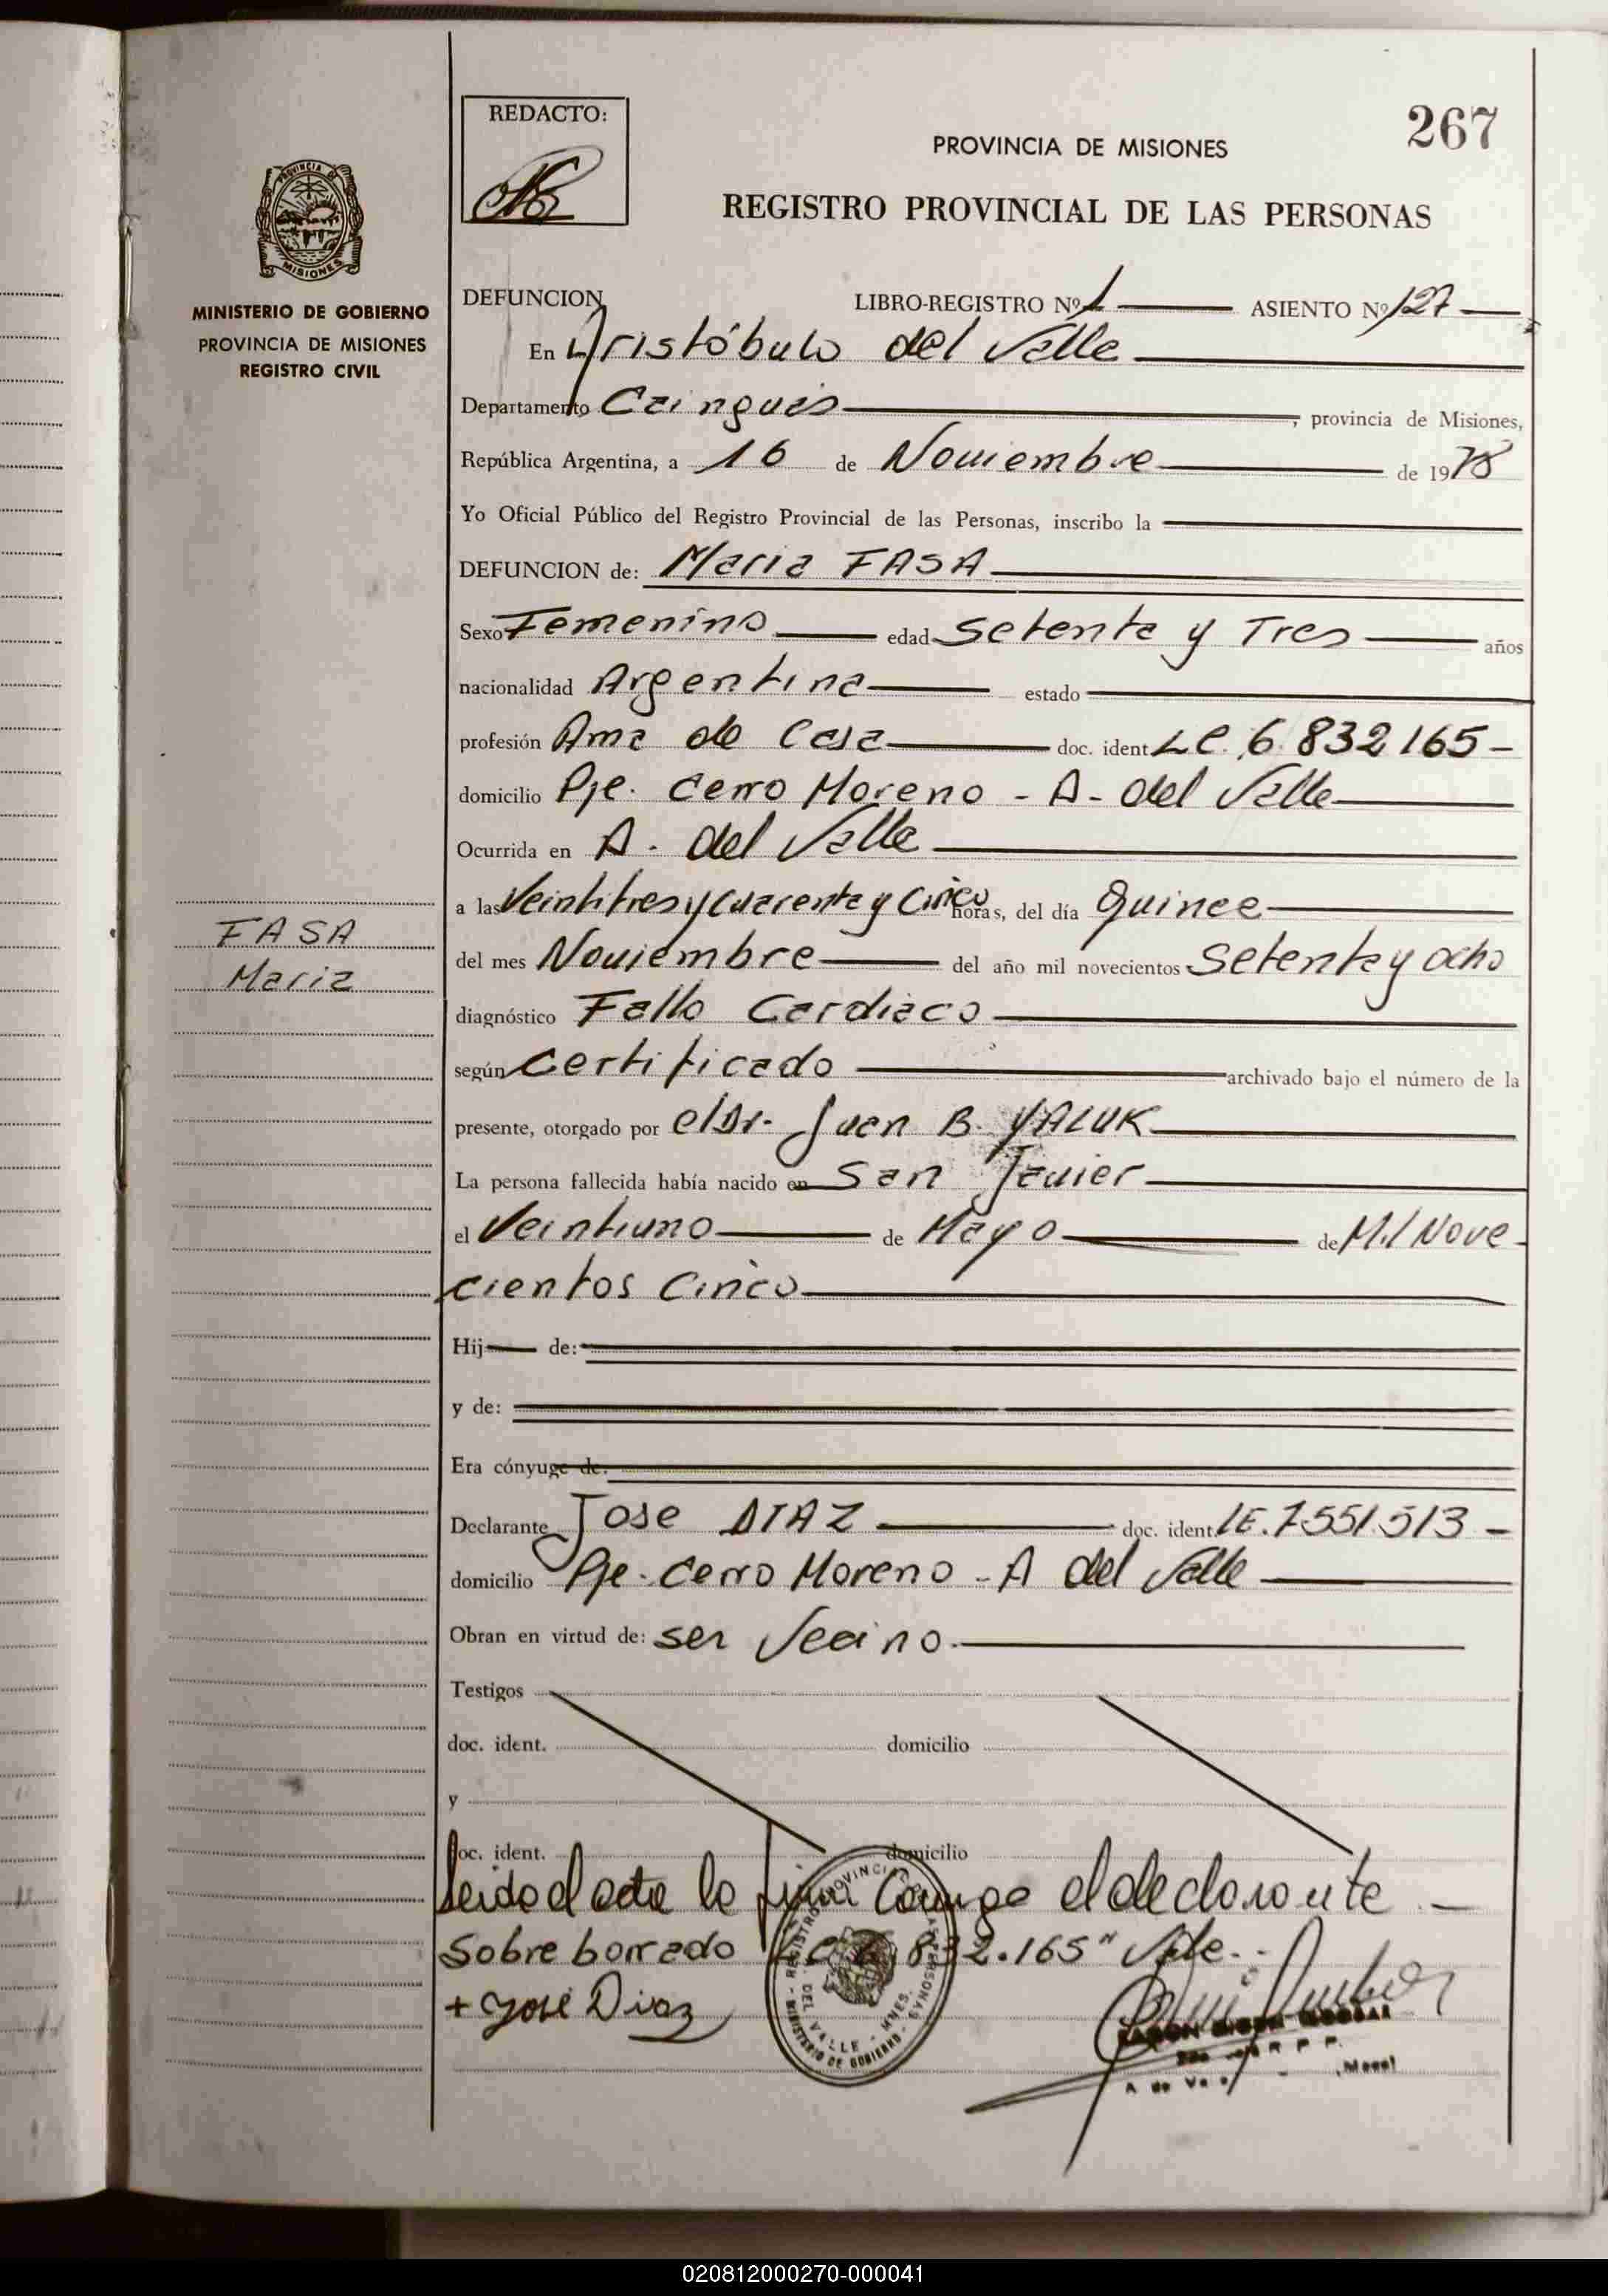 267
REDACTO:
PROVINCIA DE MISIONES
REGISTRO PROVINCIAL DE LAS PERSONAS
PROVINCIA DE
MISIONES
MINISTERIO DE GOBIERNO
PROVINCIA DE MISIONES
REGISTRO CIVIL
DEFUNCION LIBRO-REGISTRO Nº 1 ASIENTO Nº 127
En Aristóbulo del Valle
Departamento Cainguás, provincia de Misiones,
República Argentina, a 16 de Noviembre de 1978
Yo Oficial Público del Registro Provincial de las Personas, inscribo la
DEFUNCION de: Maria FASA
Sexo Femenino edad Setenta y Tres años
nacionalidad Argentina estado
profesión Ama de Casa doc. ident. L.C. 6.832165-
domicilio Pje. Cerro Moreno - A- del Valle
Ocurrida en A. del Valle
a las Veintitres y cuarenta y Cinco horas, del día Quince
del mes Noviembre del año mil novecientos Setenta y ocho
FASA
Maria
diagnóstico Fallo Cardiaco
según Certificado archivado bajo el número de la
presente, otorgado por el Dr. Juan B. YALUK
La persona fallecida había nacido en San Javier
el Veintiuno de Mayo de Mil Nove-
cientos Cinco
Hij de:
y de:
Era cónyuge de:
Declarante Jose DIAZ doc. ident. LE.7.551.513-
domicilio Pje. Cerro Moreno - A del Valle
Obran en virtud de: ser Vecino.
Testigos
doc. ident. domicilio
y
doc. ident. domicilio
Leida el acta la firma Conmigo el declarante.-
Sobre borrado L.C. 6.832.165" Vale.-
+ José Diaz
REGISTRO PROVINCIAL DE LAS PERSONAS
DEL VALLE - MNES.
MINISTERIO DE GOBIERNO
R P P.
A de Va
020812000270-000041